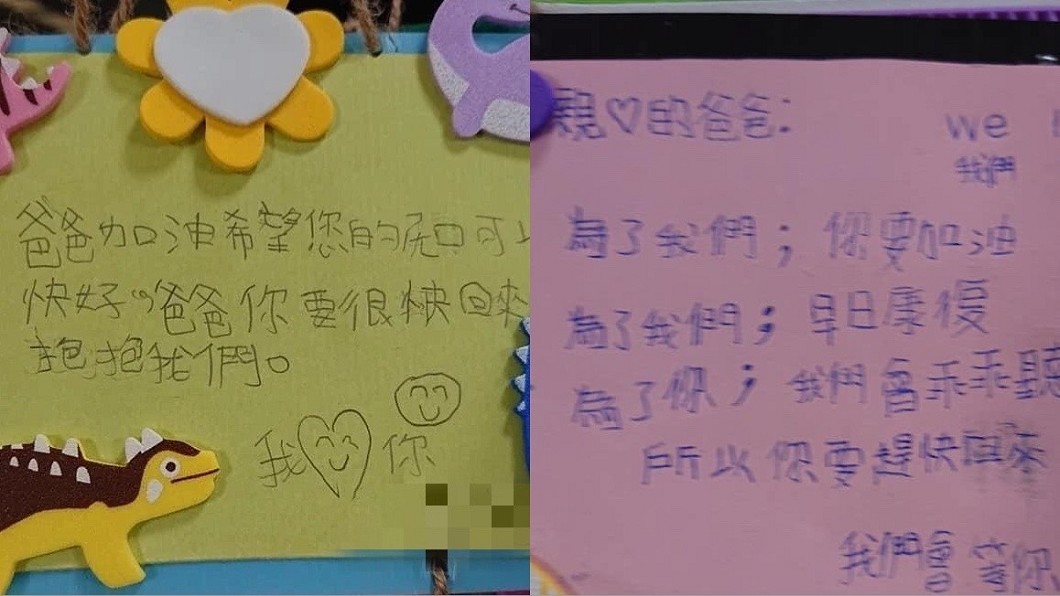 爸爸加油希望您的屍口可以
快好，爸爸你要很快回來
抱抱我們。
我♡你
親♡的爸爸：
we
我們
為了我們；你要加油
為了我們；早日康復
為了你；我們會乖乖聽
所以你要趕快回來
我們會等你